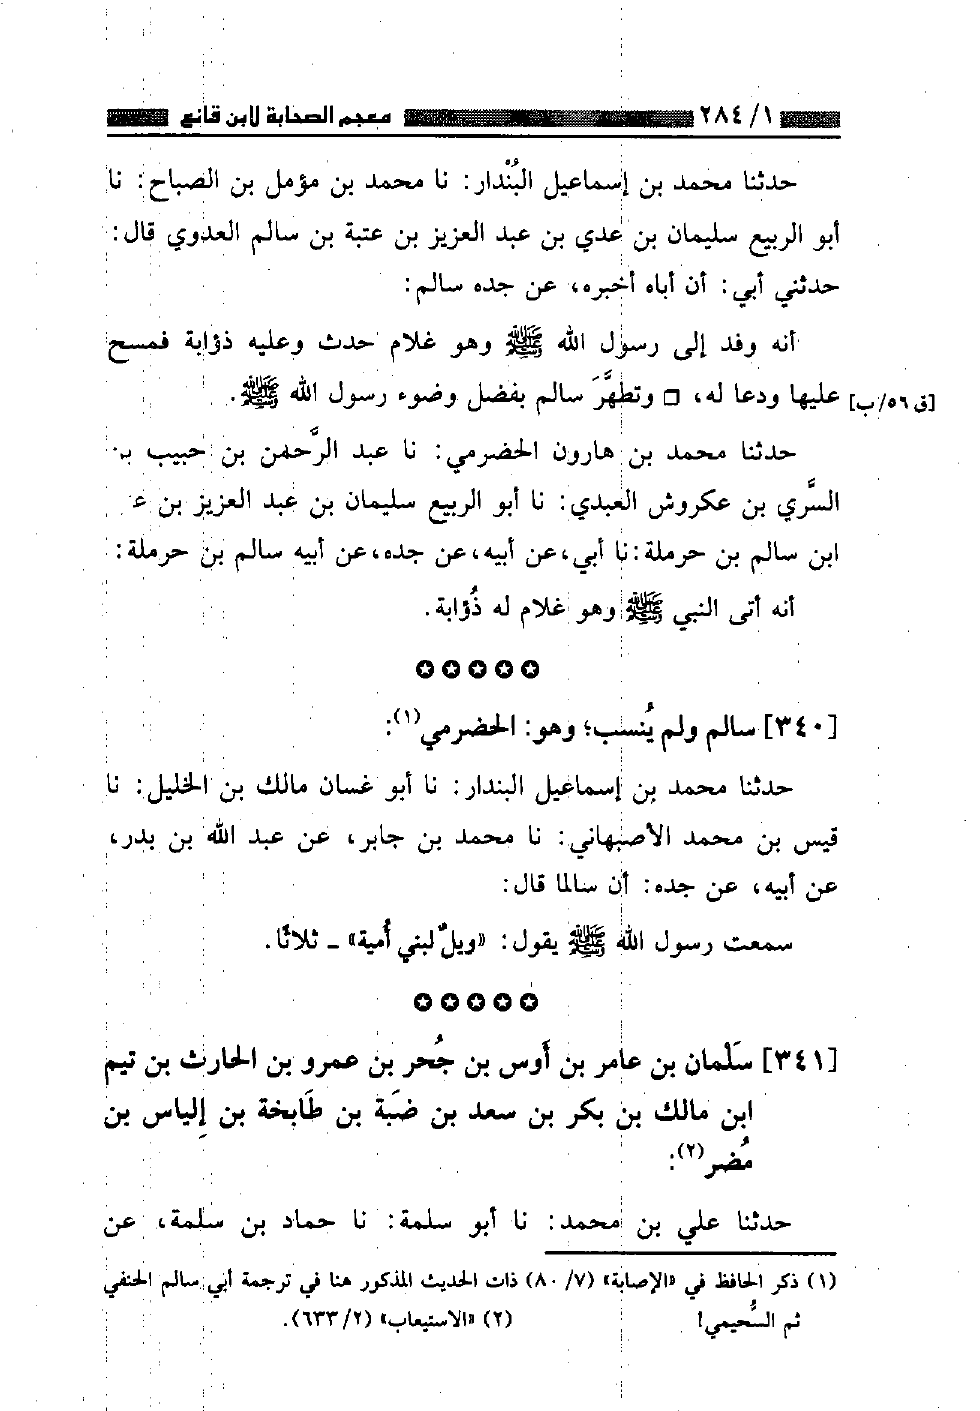 ٢٨٤/١ معجم الصحابة لابن قانع
حدثنا محمد بن إسماعيل البُنْدار: نا محمد بن مؤمل بن الصباح: نا
أبو الربيع سليمان بن عدي بن عبد العزيز بن عتبة بن سالم العدوي قال:
حدثني أبي: أن أباه أخبره، عن جده سالم:
أنه وفد إلى رسول الله ﷺ وهو غلام حدث وعليه ذؤابة فمسح
عليها ودعا له، □ وتطهَّرَ سالم بفضل وضوء رسول الله ﷺ.
[ق٥٦/ب]
حدثنا محمد بن هارون الحضرمي: نا عبد الرَّحمن بن حبيب بن
السَّري بن عكروش العبدي: نا أبو الربيع سليمان بن عبد العزيز بن
ابن سالم بن حرملة: نا أبي، عن أبيه، عن جده، عن أبيه سالم بن حرملة:
أنه أتى النبي ﷺ وهو غلام له ذُؤابة.
✪✪✪✪✪
[٣٤٠] سالم ولم يُنسب؛ وهو: الحضرمي(١):
حدثنا محمد بن إسماعيل البندار: نا أبو غسان مالك بن الخليل: نا
قيس بن محمد الأصبهاني: نا محمد بن جابر، عن عبد الله بن بدر،
عن أبيه، عن جده: أن سالما قال:
سمعت رسول الله ﷺ يقول: «ويلٌ لبني أُمية» ـ ثلاثًا.
✪✪✪✪✪
[٣٤١] سَلْمان بن عامر بن أَوس بن حُجر بن عمرو بن الحارث بن تيم
ابن مالك بن بكر بن سعد بن ضَبة بن طَابخة بن إِلياس بن
مُضر(٢):
حدثنا علي بن محمد: نا أبو سلمة: نا حماد بن سلمة، عن
(١) ذكر الحافظ في «الإصابة» (٧/ ٨٠) ذات الحديث المذكور هنا في ترجمة أبي سالم الحنفي
ثم السُّحيمي!
(٢) «الاستيعاب» (٢/ ٦٣٣).